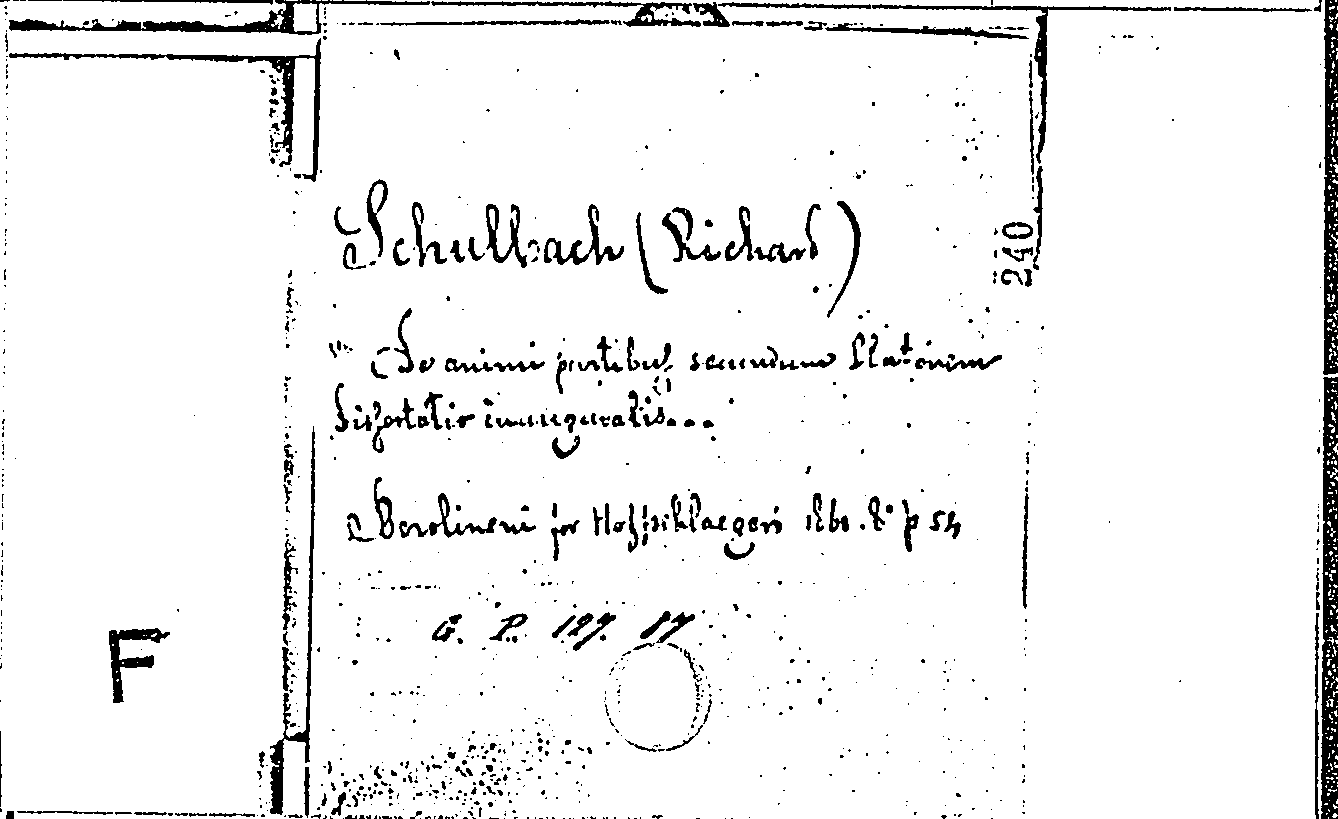 Schulbach (Richard)
240
De animi partibus secundum Platonem
Dissertatio inauguralis...
Berolineni for 8° p 54
G. P. 127. 87
F